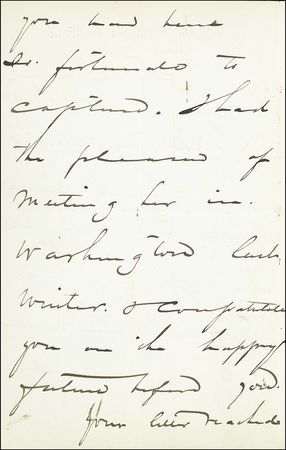 you have been
so fortunate to
capture. I had
the pleasure of
meeting her in
Washington last
winter. & congratulate
you on the happy
future before you.
Your letter reached